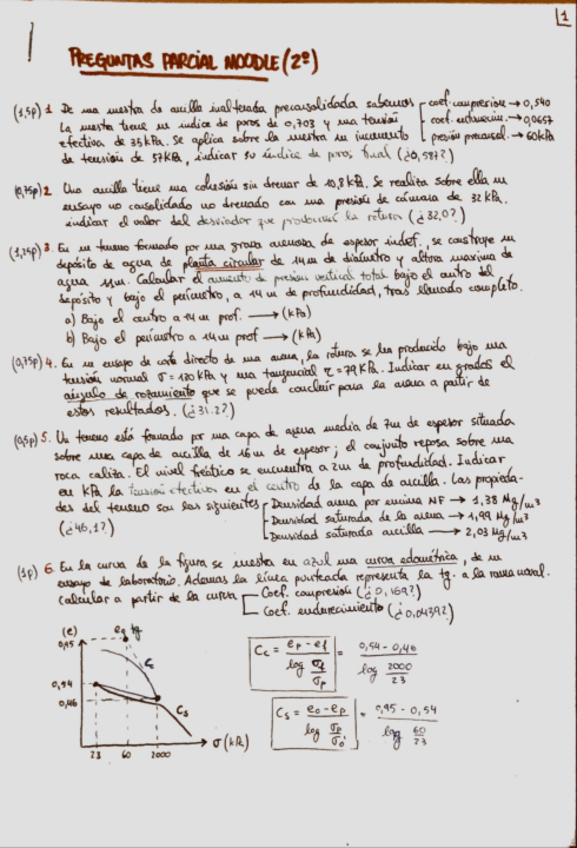 1
PREGUNTAS PARCIAL MOODLE (2º)
(1,5p) 1. De una muestra de arcilla inalterada preconsolidada sabemos coef. compresión → 0,540
La muestra tiene un índice de poros de 0,703 y una tensión coef. endurecim. → 0,0657
efectiva de 35 kPa. Se aplica sobre la muestra un incremento presión preconsol. → 60 kPa
de tensión de 57 kPa, indicar su índice de poros final (¿0,587?)
(0,75p) 2 Una arcilla tiene una cohesión sin drenar de 10,8 kPa. Se realiza sobre ella un
ensayo no consolidado no drenado con una presión de cámara de 32 kPa.
indicar el valor del desviador que producirá la rotura (¿32,0?)
(1,25p) 3. En un terreno formado por una grava arenosa de espesor indef., se construye un
depósito de agua de planta circular de 14 m de diámetro y altura maxima de
agua 11m. Calcular el aumento de presión vertical total bajo el centro del
depósito y bajo el perímetro, a 14 m de profundidad, tras llenado completo.
a) Bajo el centro a 14 m prof. → (kPa)
b) Bajo el perímetro a 14 m prof → (kPa)
(0,75p) 4. En un ensayo de corte directo de una arena, la rotura se ha producido bajo una
tensión normal σ = 130 kPa y una tangencial τ = 79 kPa. Indicar en grados el
ángulo de rozamiento que se puede concluir para la arena a partir de
estos resultados. (¿31.2?)
(0,5p) 5. Un terreno está formado por una capa de arena media de 7m de espesor situada
sobre una capa de arcilla de 16 m de espesor; el conjunto reposa sobre una
roca caliza. El nivel freático se encuentra a 2m de profundidad. Indicar
en kPa la tensión efectiva en el centro de la capa de arcilla. Las propieda-
des del terreno son las siguientes Densidad arena por encima NF → 1,38 Mg/m³
(¿46,1?) Densidad saturada de la arena → 1,99 Mg/m³
Densidad saturada arcilla → 2,03 Mg/m³
(1p) 6. En la curva de la figura se muestra en azul una curva edométrica, de un
ensayo de laboratorio. Ademas la línea punteada representa la tg. a la rama noval.
Calcular a partir de la curva Coef. compresión (¿0,169?)
Coef. endurecimiento (¿0,0439?)
(e) e₀ tg
0,95
Cc
0,54
0,46
Cs
23 60 2000 σ (kPa)
Cc = (ep - ef) / (log σf/σp) = (0,54 - 0,46) / (log 2000/23)
Cs = (e₀ - ep) / (log σp/σ₀') = (0,95 - 0,54) / (log 60/23)